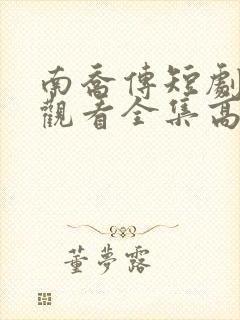 南喬傳短劇
觀看全集高
董夢露